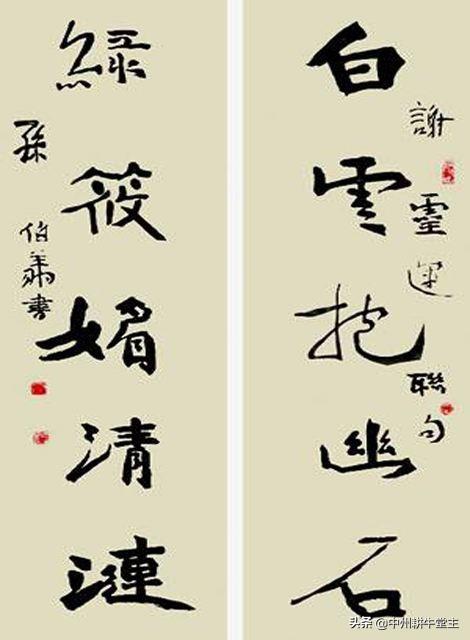 白雲抱幽石
謝靈運聯句
綠筱媚清漣
孫伯翔書
头条 @中州耕牛堂主